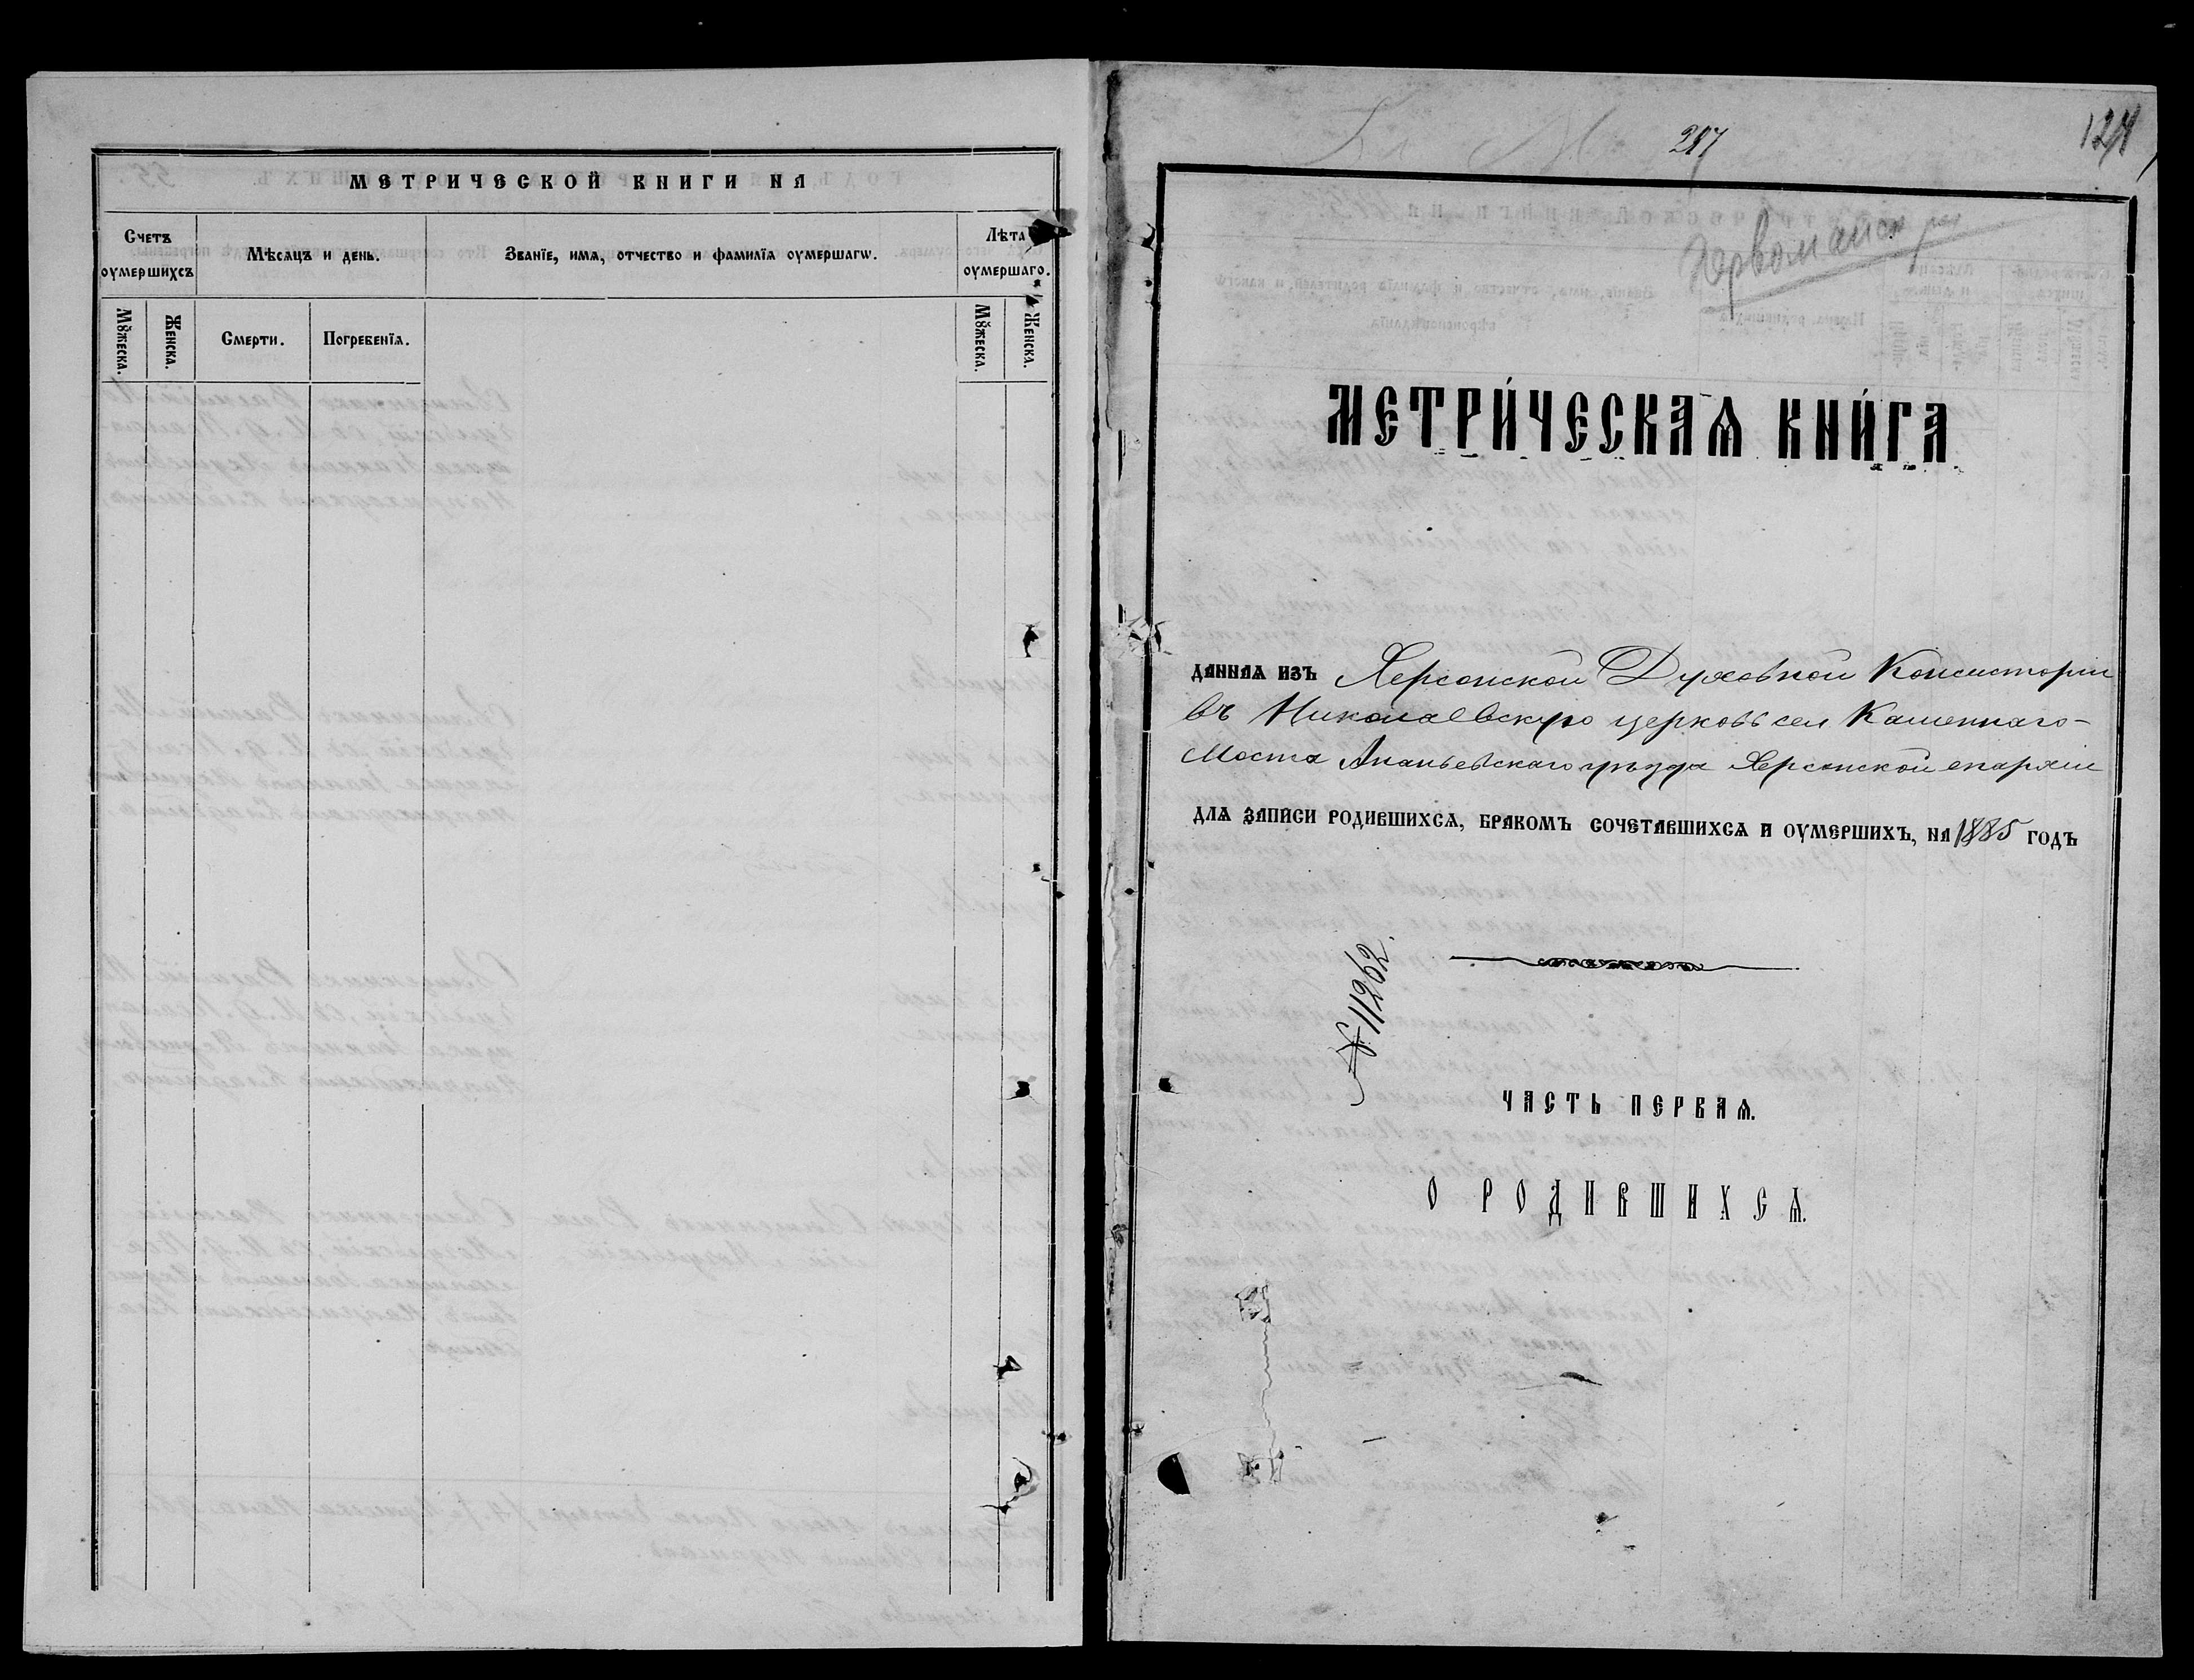 МЕТРИЧЕСКОЙ КНИГИ НА
Счетъ оумершихсъ
Мѣсяцъ и день.
Званїе, имѧ, отчество и фамилїѧ оумершагѡ.
Лѣта оумершаго.
Мꙋжеска.
Женска.
Смерти.
Погребенїѧ.
Мꙋжеска.
Женска.
217
Первомайск
МЕТРИ́ЧЕСКАѦ КНИ́ГА
ДАННАѦ ИЗЪ Херсонской Духовной Консисторіи
въ Николаевскую церковь села Каменнаго-
Моста Ананьевскаго уѣзда Херсонской епархіи
ДЛѦ ЗАПИСИ РОДИВШИХСѦ, БРАКОМЪ СОЧЕТАВШИХСѦ И ОУМЕРШИХЪ, НА 1885 ГОДЪ
№ 11262.
ЧАСТЬ ПЕРВАѦ.
О РОДИВШИХСѦ.